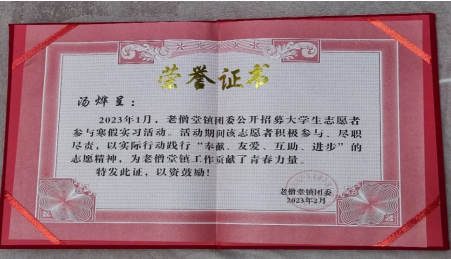 荣誉证书
汤烨星：
2023年1月，老僧堂镇团委公开招募大学生志愿者
参与寒假实习活动。活动期间该志愿者积极参与、尽职
尽责，以实际行动践行“奉献、友爱、互助、进步”的
志愿精神，为老僧堂镇工作贡献了青春力量。
特发此证，以资鼓励！
老僧堂镇团委
2023年2月